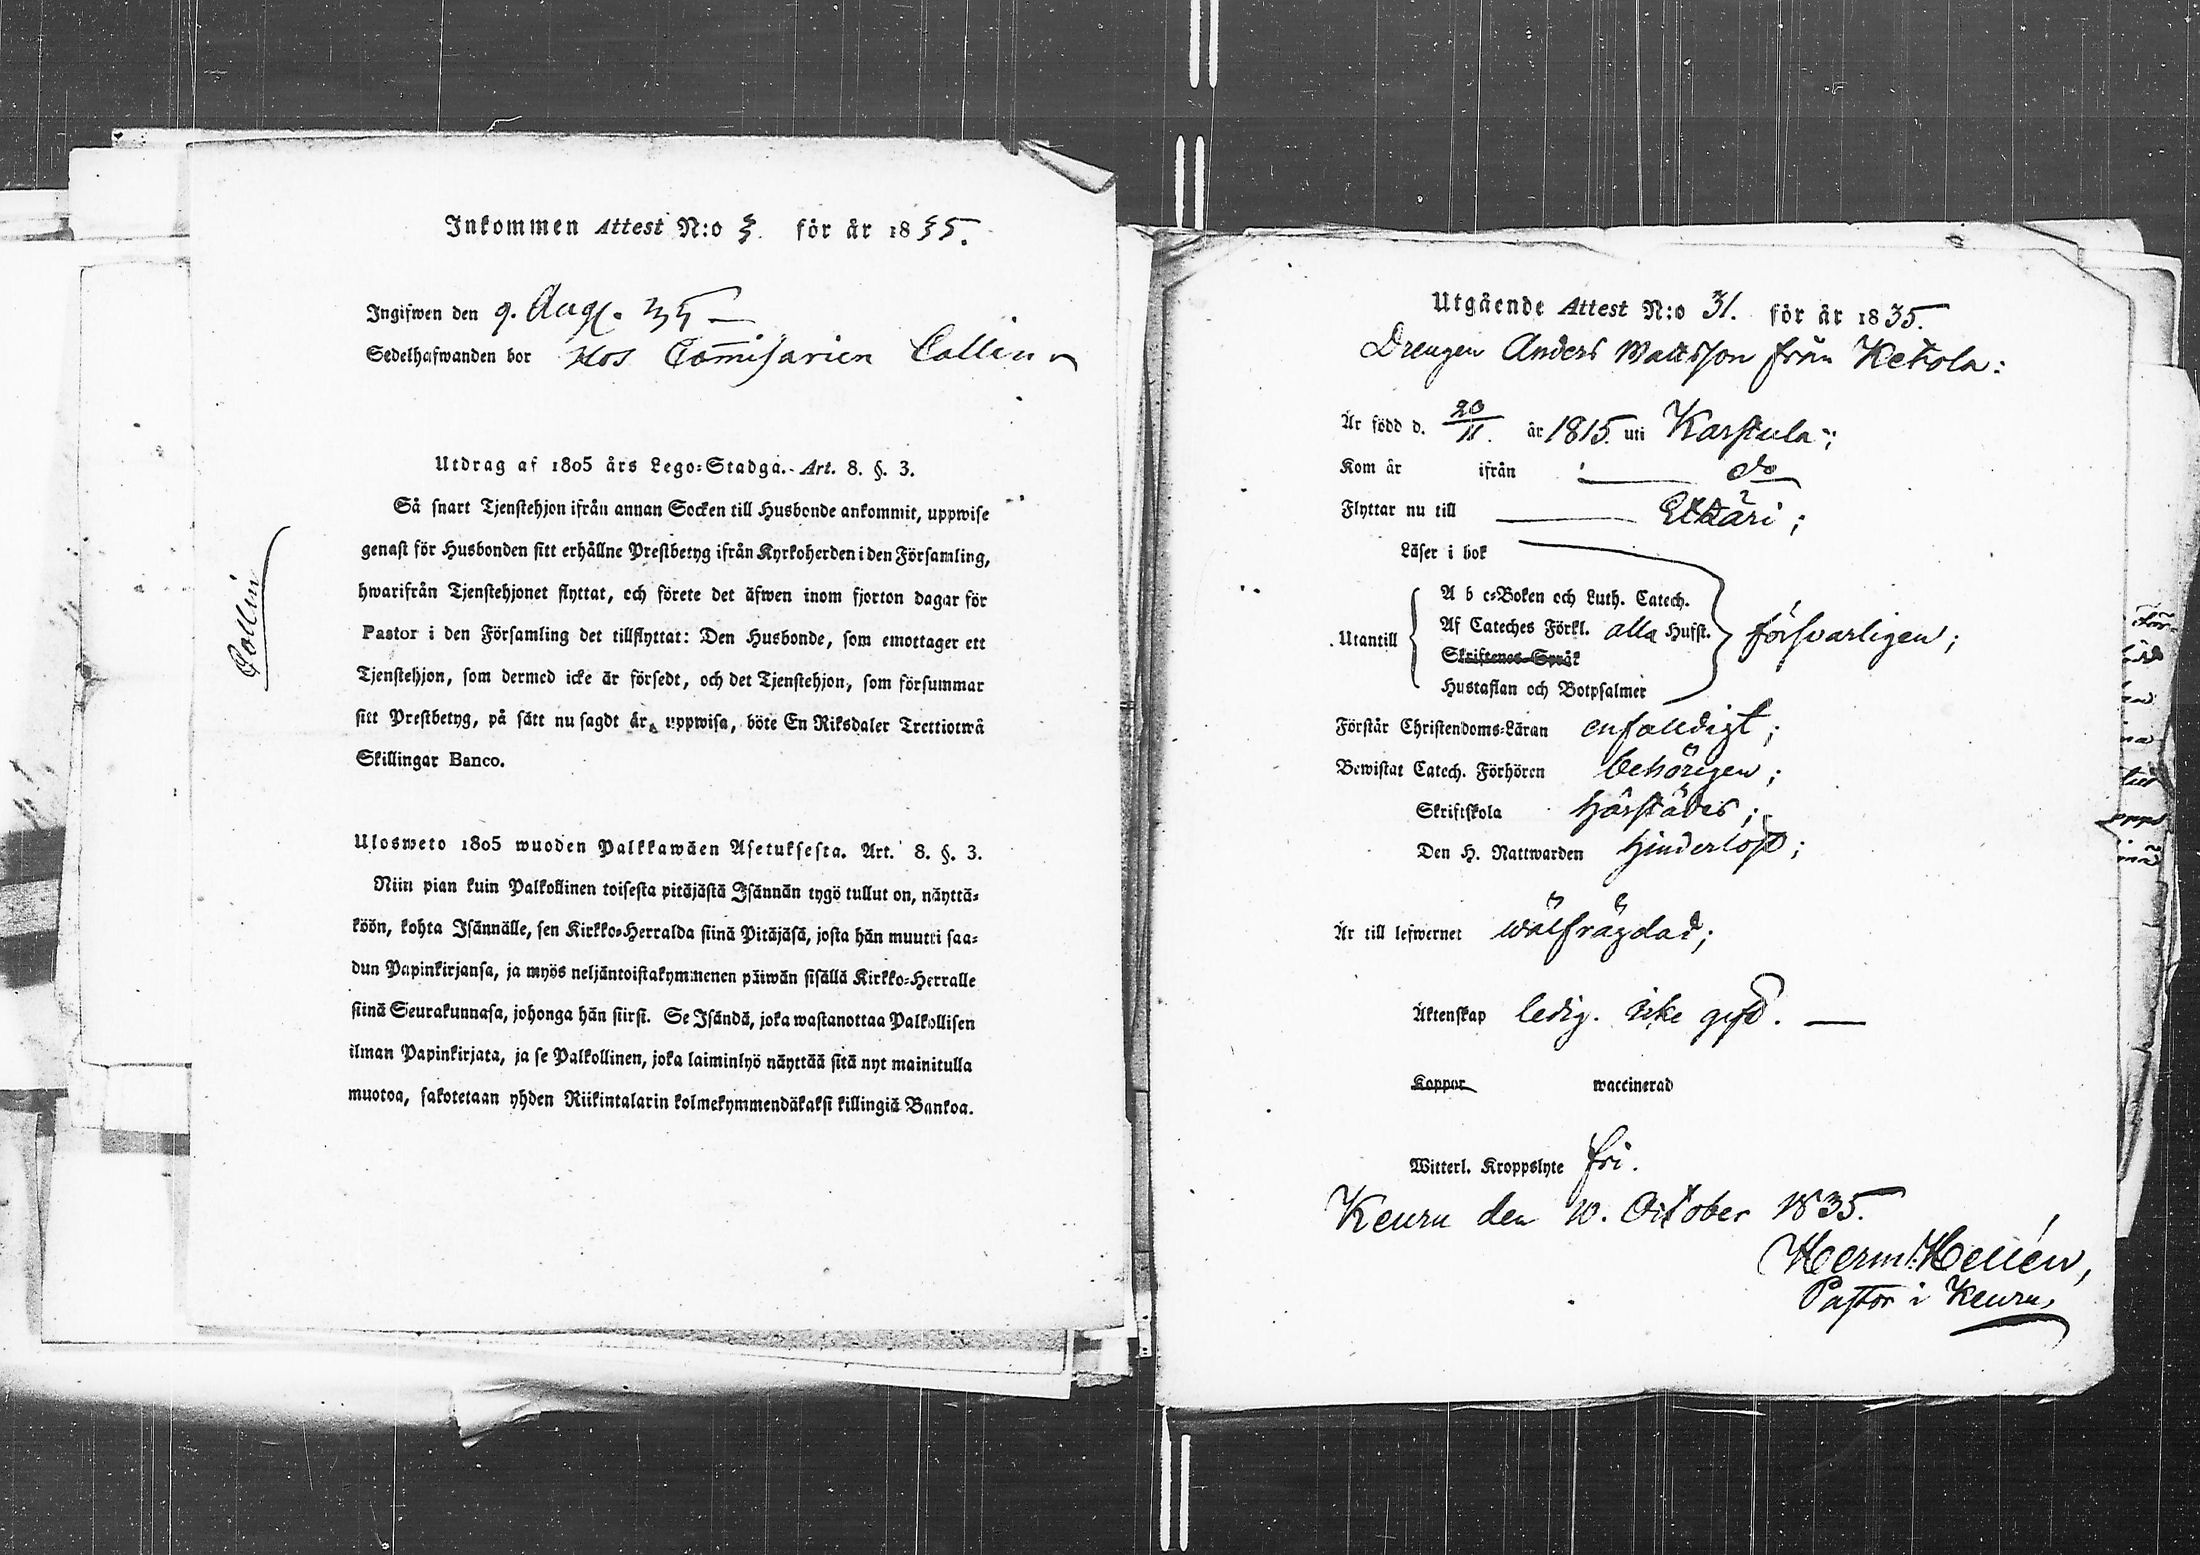 Inkommen Attest N:o 3. för år 1835.
Ingifwen den 9. Aug. 35
Sedelhafwanden bor Hos Commisarien Collin
Collin
Utdrag af 1805 års Lego-Stadga. Art. 8. §. 3.
Så snart Tjenstehjon ifrån annan Socken till Husbonde ankommit, uppwise
genast för Husbonden sitt erhållne Prestbetyg ifrån Kyrkoherden i den Församling,
hwarifrån Tjenstehjonet flyttat, och förete det äfwen inom fjorton dagar för
Pastor i den Församling det tillflyttat: Den Husbonde, som emottager ett
Tjenstehjon, som dermed icke är försedt, och det Tjenstehjon, som försummar
sitt Prestbetyg, på sätt nu sagdt är, uppwisa, böte En Riksdaler Trettiotwå
Skillingar Banco.
Ulosweto 1805 wuoden Palkkawäen Asetuksesta. Art. 8. §. 3.
Niin pian kuin Palkollinen toisesta pitäjästä Isännän tygö tullut on, näyttä-
köön, kohta Isännälle, sen Kirkko-Herralda siinä Pitäjäsä, josta hän muutti saa-
dun Papinkirjansa, ja myös neljäntoistakymmenen päiwän sisällä Kirkko-Herralle
siinä Seurakunnasa, johonga hän siirsi. Se Isändä, joka wastanottaa Palkollisen
ilman Papinkirjata, ja se Palkollinen, joka laiminlyö näyttää sitä nyt mainitulla
muotoa, sakotetaan yhden Riikintalarin kolmekymmendäkaksi killingiä Bankoa.
Utgående Attest N:o 31. för år 1835.
Drengen Anders Mattsson från Ketola:
Är född d. 20/11. år 1815. uti Karstula;
Kom år ifrån do
Flyttar nu till Etzäri;
Läser i bok
A b c-Boken och Luth. Catech.
Utantill Af Cateches Förkl. alla Hufst. försvarligen;
Skriftenes-Språk
Hustaflan och Botpsalmer
Förstår Christendoms-Läran enfaldigt;
Bewistat Catech. Förhören behörigen;
Skriftskola härstädes;
Den H. Nattwarden hinderlöst;
Är till lefwernet wälfrägdad;
Äktenskap ledig. icke gift.
Koppor waccinerad
Witterl. Kroppslyte fri.
Keuru den 10. October 1835.
Herm: Hellén,
Pastor i Keuru.